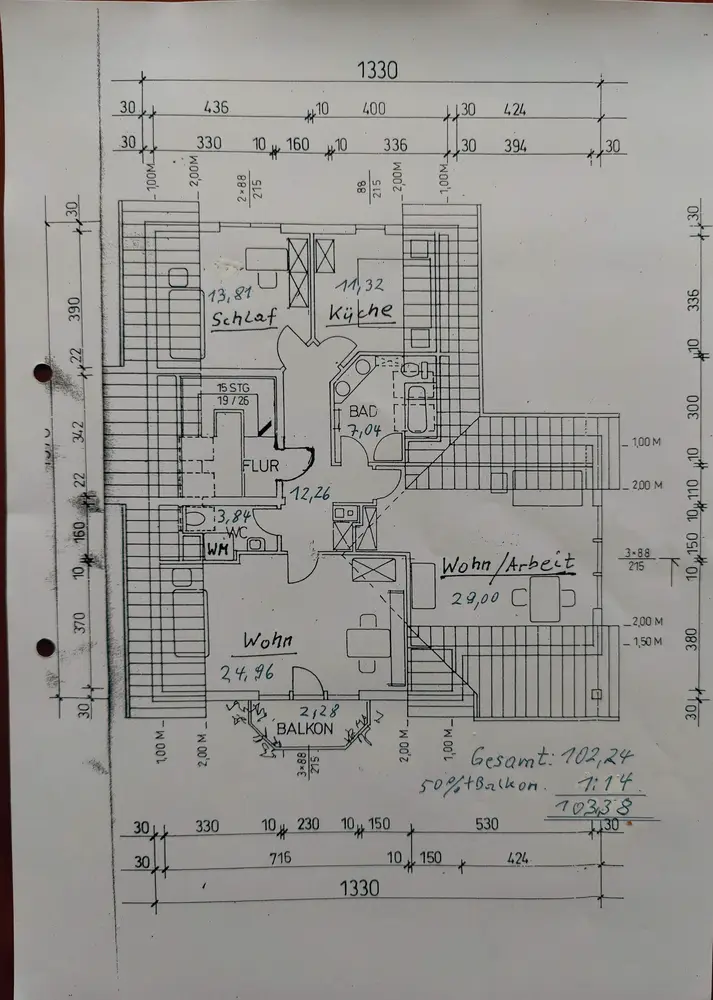 1330
30 436 10 400 30 424
30 330 10 160 10 336 30 394 30
1,00M 2,00M 2×88 215 88 215 2,00M 1,00M
30 30
390 336
13,81 11,32
Schlaf Küche
22 10
15 STG
19 / 26
300
342
BAD
7,04
1,00 M
FLUR
2,00 M
22 12,26 10 110
160 3,84 10
WC
WM
150
Wohn/Arbeit
3×88 215
10 29,00 10
370 380
2,00 M
Wohn 1,50 M
24,96
30 2,28 30
BALKON
1,00 M 2,00 M 3×88 215 2,00 M 1,00 M
Gesamt: 102,24
50% + Balkon. 1:14
103,38
30 330 10 230 10 150 530 30
30 716 10 150 424
1330